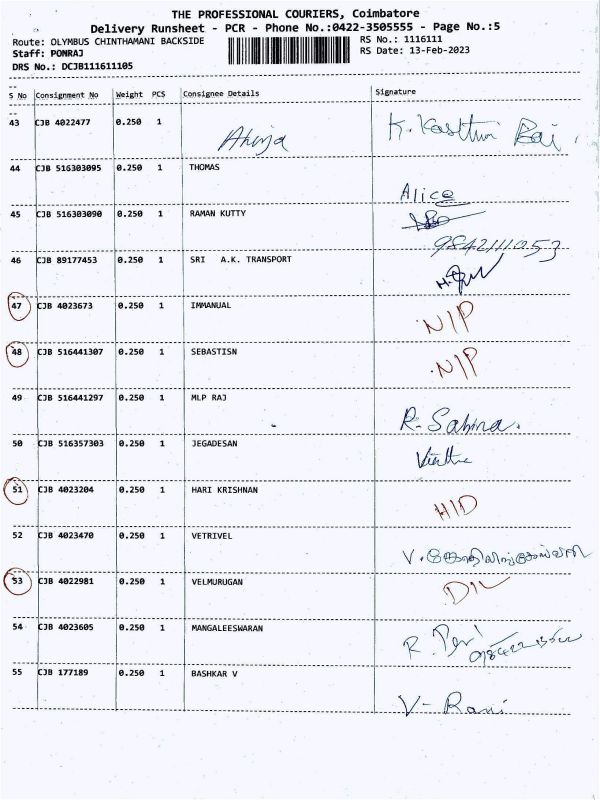 THE PROFESSIONAL COURIERS, Coimbatore
Delivery Runsheet - PCR - Phone No.:0422-3505555 - Page No.:5
Route: OLYMBUS CHINTHAMANI BACKSIDE RS No.: 1116111
Staff: PONRAJ RS Date: 13-Feb-2023
DRS No.: DCJB111611105
S No Consignment No Weight PCS Consignee Details Signature
43 CJB 4022477 0.250 1 K. Kasthuri Bai
44 CJB 516303095 0.250 1 THOMAS
Alice
45 CJB 516303090 0.250 1 RAMAN KUTTY
9842111053
46 CJB 89177453 0.250 1 SRI A.K. TRANSPORT
47 CJB 4023673 0.250 1 IMMANUAL
N/P
48 CJB 516441307 0.250 1 SEBASTISN
N/P
49 CJB 516441297 0.250 1 MLP RAJ
R. Sabina.
50 CJB 516357303 0.250 1 JEGADESAN
51 CJB 4023204 0.250 1 HARI KRISHNAN
H/D
52 CJB 4023470 0.250 1 VETRIVEL
53 CJB 4022981 0.250 1 VELMURUGAN
D/L
54 CJB 4023605 0.250 1 MANGALEESWARAN
55 CJB 177189 0.250 1 BASHKAR V
V- Rani